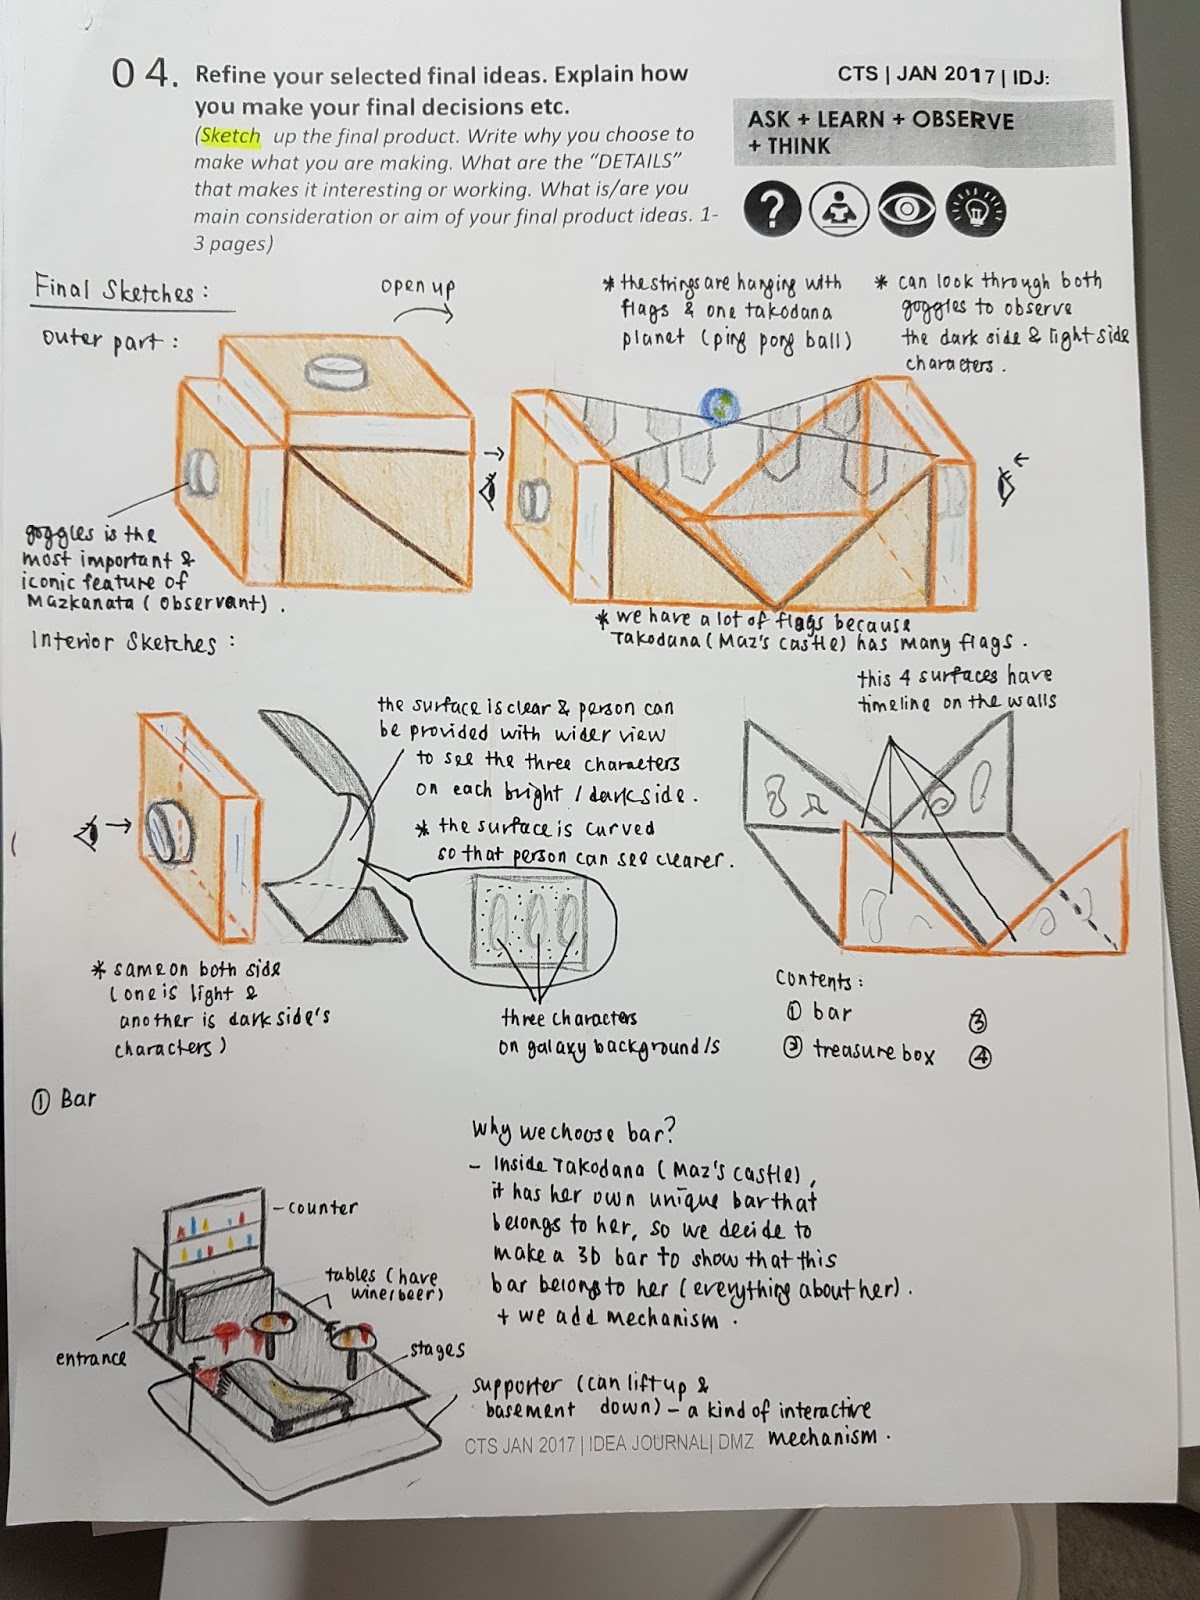 04. Refine your selected final ideas. Explain how
you make your final decisions etc.
(Sketch up the final product. Write why you choose to
make what you are making. What are the “DETAILS”
that makes it interesting or working. What is/are you
main consideration or aim of your final product ideas. 1-
3 pages)
CTS | JAN 2017 | IDJ:
ASK + LEARN + OBSERVE
+ THINK
?
Final Sketches :
outer part :
open up
* the strings are hanging with
flags & one takodana
planet (ping pong ball)
* can look through both
goggles to observe
the dark side & light side
characters.
goggles is the
most important &
iconic feature of
Mazkanata (observant).
* we have a lot of flags because
Takodana (Maz's castle) has many flags.
Interior Sketches :
the surface is clear & person can
be provided with wider view
to see the three characters
on each bright / dark side.
* the surface is curved
so that person can see clearer.
this 4 surfaces have
timeline on the walls
* same on both side
(one is light &
another is dark side's
characters)
three characters
on galaxy background/s
Contents:
① bar
② treasure box
③
④
① Bar
counter
tables (have
wine/beer)
stages
entrance
why we choose bar?
- Inside Takodana (Maz's castle),
it has her own unique bar that
belongs to her, so we decide to
make a 3D bar to show that this
bar belongs to her (everything about her).
+ we add mechanism.
supporter (can lift up &
basement down) - a kind of interactive
mechanism.
CTS JAN 2017 | IDEA JOURNAL| DMZ